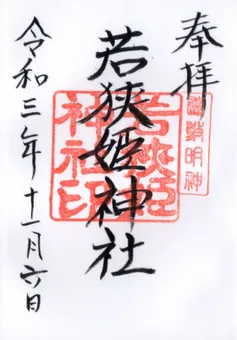 奉拝
若狭姫神社
令和三年十一月六日
若狭姫
神社印